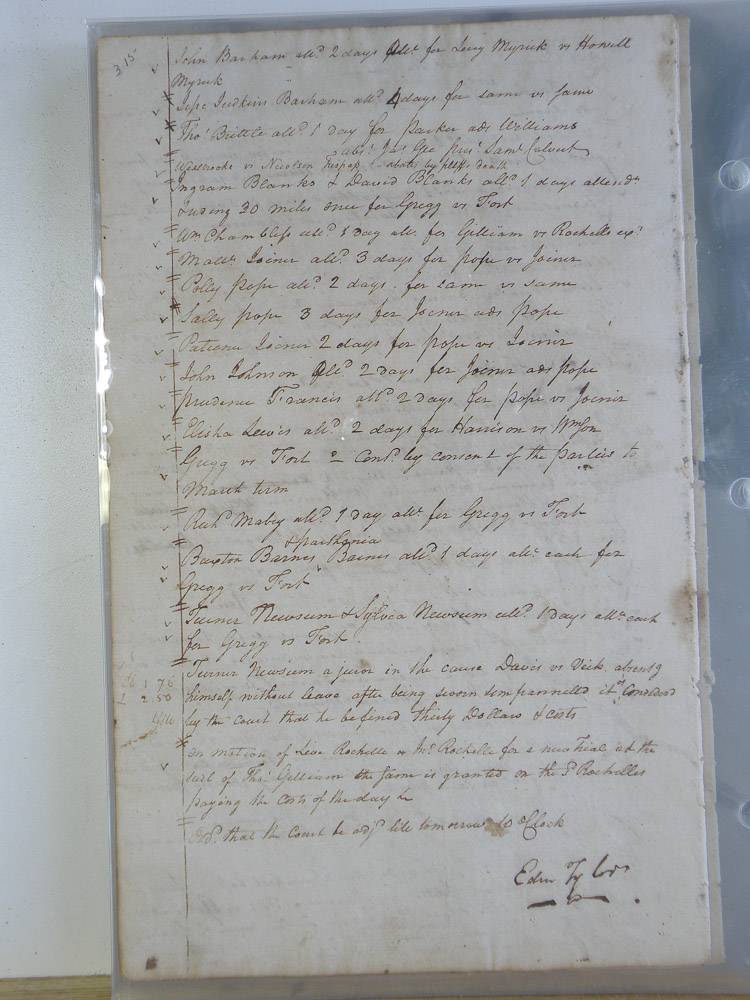 315
John Barham all.d 2 days att.e for Levy Myrick vs Howell
Myrick
Judkins Barham all.d 4 days for same vs same
Tho.s Brittle all.d 1 day for parker ads Williams
abs.t Jas Gee pres.t Sam.l Calvert
Westbrooks vs Nicolson Trespass abates by pltffs death
Ingram Blanks & David Blanks all.d 1 days attend.e
30 miles once for Gregg vs Fort
Wm Chambless all.d 1 day att. for Gilliam vs Rochells ex.r
Matt.w Joiner all.d 3 days for pope vs Joiner
Polly pope all.d 2 days for same vs same
Sally pope 3 days for Joiner ads pope
Patience Joiner 2 days for pope vs Joiner
John Johnson all.d 2 days for Joiner ads pope
prudence Francis all.d 2 days for pope vs Joiner
Elisha Lewis all.d 2 days for Harrison vs Wmson
Gregg vs Fort = Cont.d by consent of the parties to
March term
Rich.d Mabry all.d 1 day att.e for Gregg vs Fort
& parthenia
Baxton Barnes Barnes all.d 1 days att.e each for
Gregg vs Fort
Turner Newsum & Sylvia Newsum all.d 1 days att.e each
for Gregg vs Fort
Turner Newsum a juror in the cause Davis vs Vick absent.g
1 76
himself without leave after being sworn & empannelled it is Considered
2.50
by the court that he be fined thirty Dollars & costs
on motion of Levi Rochelle for a new Trial at the
suit of Tho.s Gilliam the same is granted on the s.d Rochelles
paying the Costs of the day &c
Ord.d that the Court be adj.d till tomorrow 10 oClock
Edm Tyler